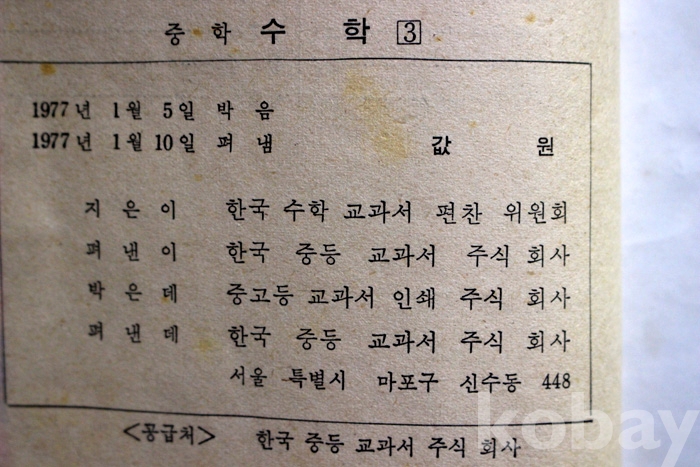 중학 수 학 3
1977년 1월 5일 박음
1977년 1월 10일 펴냄 값 원
지은이 한국 수학 교과서 편찬 위원회
펴낸이 한국 중등 교과서 주식 회사
박은데 중고등 교과서 인쇄 주식 회사
펴낸데 한국 중등 교과서 주식 회사
서울 특별시 마포구 신수동 448
<공급처> 한국 중등 교과서 주식 회사
kobay